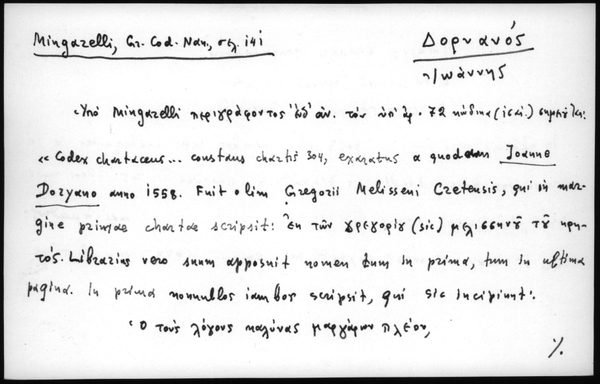 Mingarelli, Gr. Cod. Nan., σελ. 141
Δορυανός
Ἰωάννης
Ὑπὸ Mingarelli περιγράφοντος ἐνθ' ἀν. τὸν ὑπ' ἀρ. 72 κώδικα σημειοῦται:
« Codex chartaceus... constans chartis 304, exaratus a quodam Joanne
Doryano anno 1558. Fuit olim Gregorii Melisseni Cretensis, qui in mar-
gine primae chartae scripsit: Ἐκ τῶν γρεγορίου (sic) μελισσηνοῦ τοῦ κρη-
τός. Librarius vero suum apposuit nomen tum in prima, tum in ultima
pagina. In prima nonnullos iambos scripsit, qui sic incipiunt:
Ὁ τοὺς λόγους καλύνας μαργάρων πλέον,
%